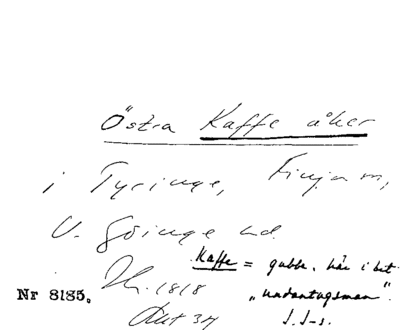 Östra Kaffe åker
i Tyringe, Finja sn,
V. Göinge hd.
Kaffe = gubbe, här i bet.
1818 "undantagsman".
Nr 8185. Akt 34 S. J-s.